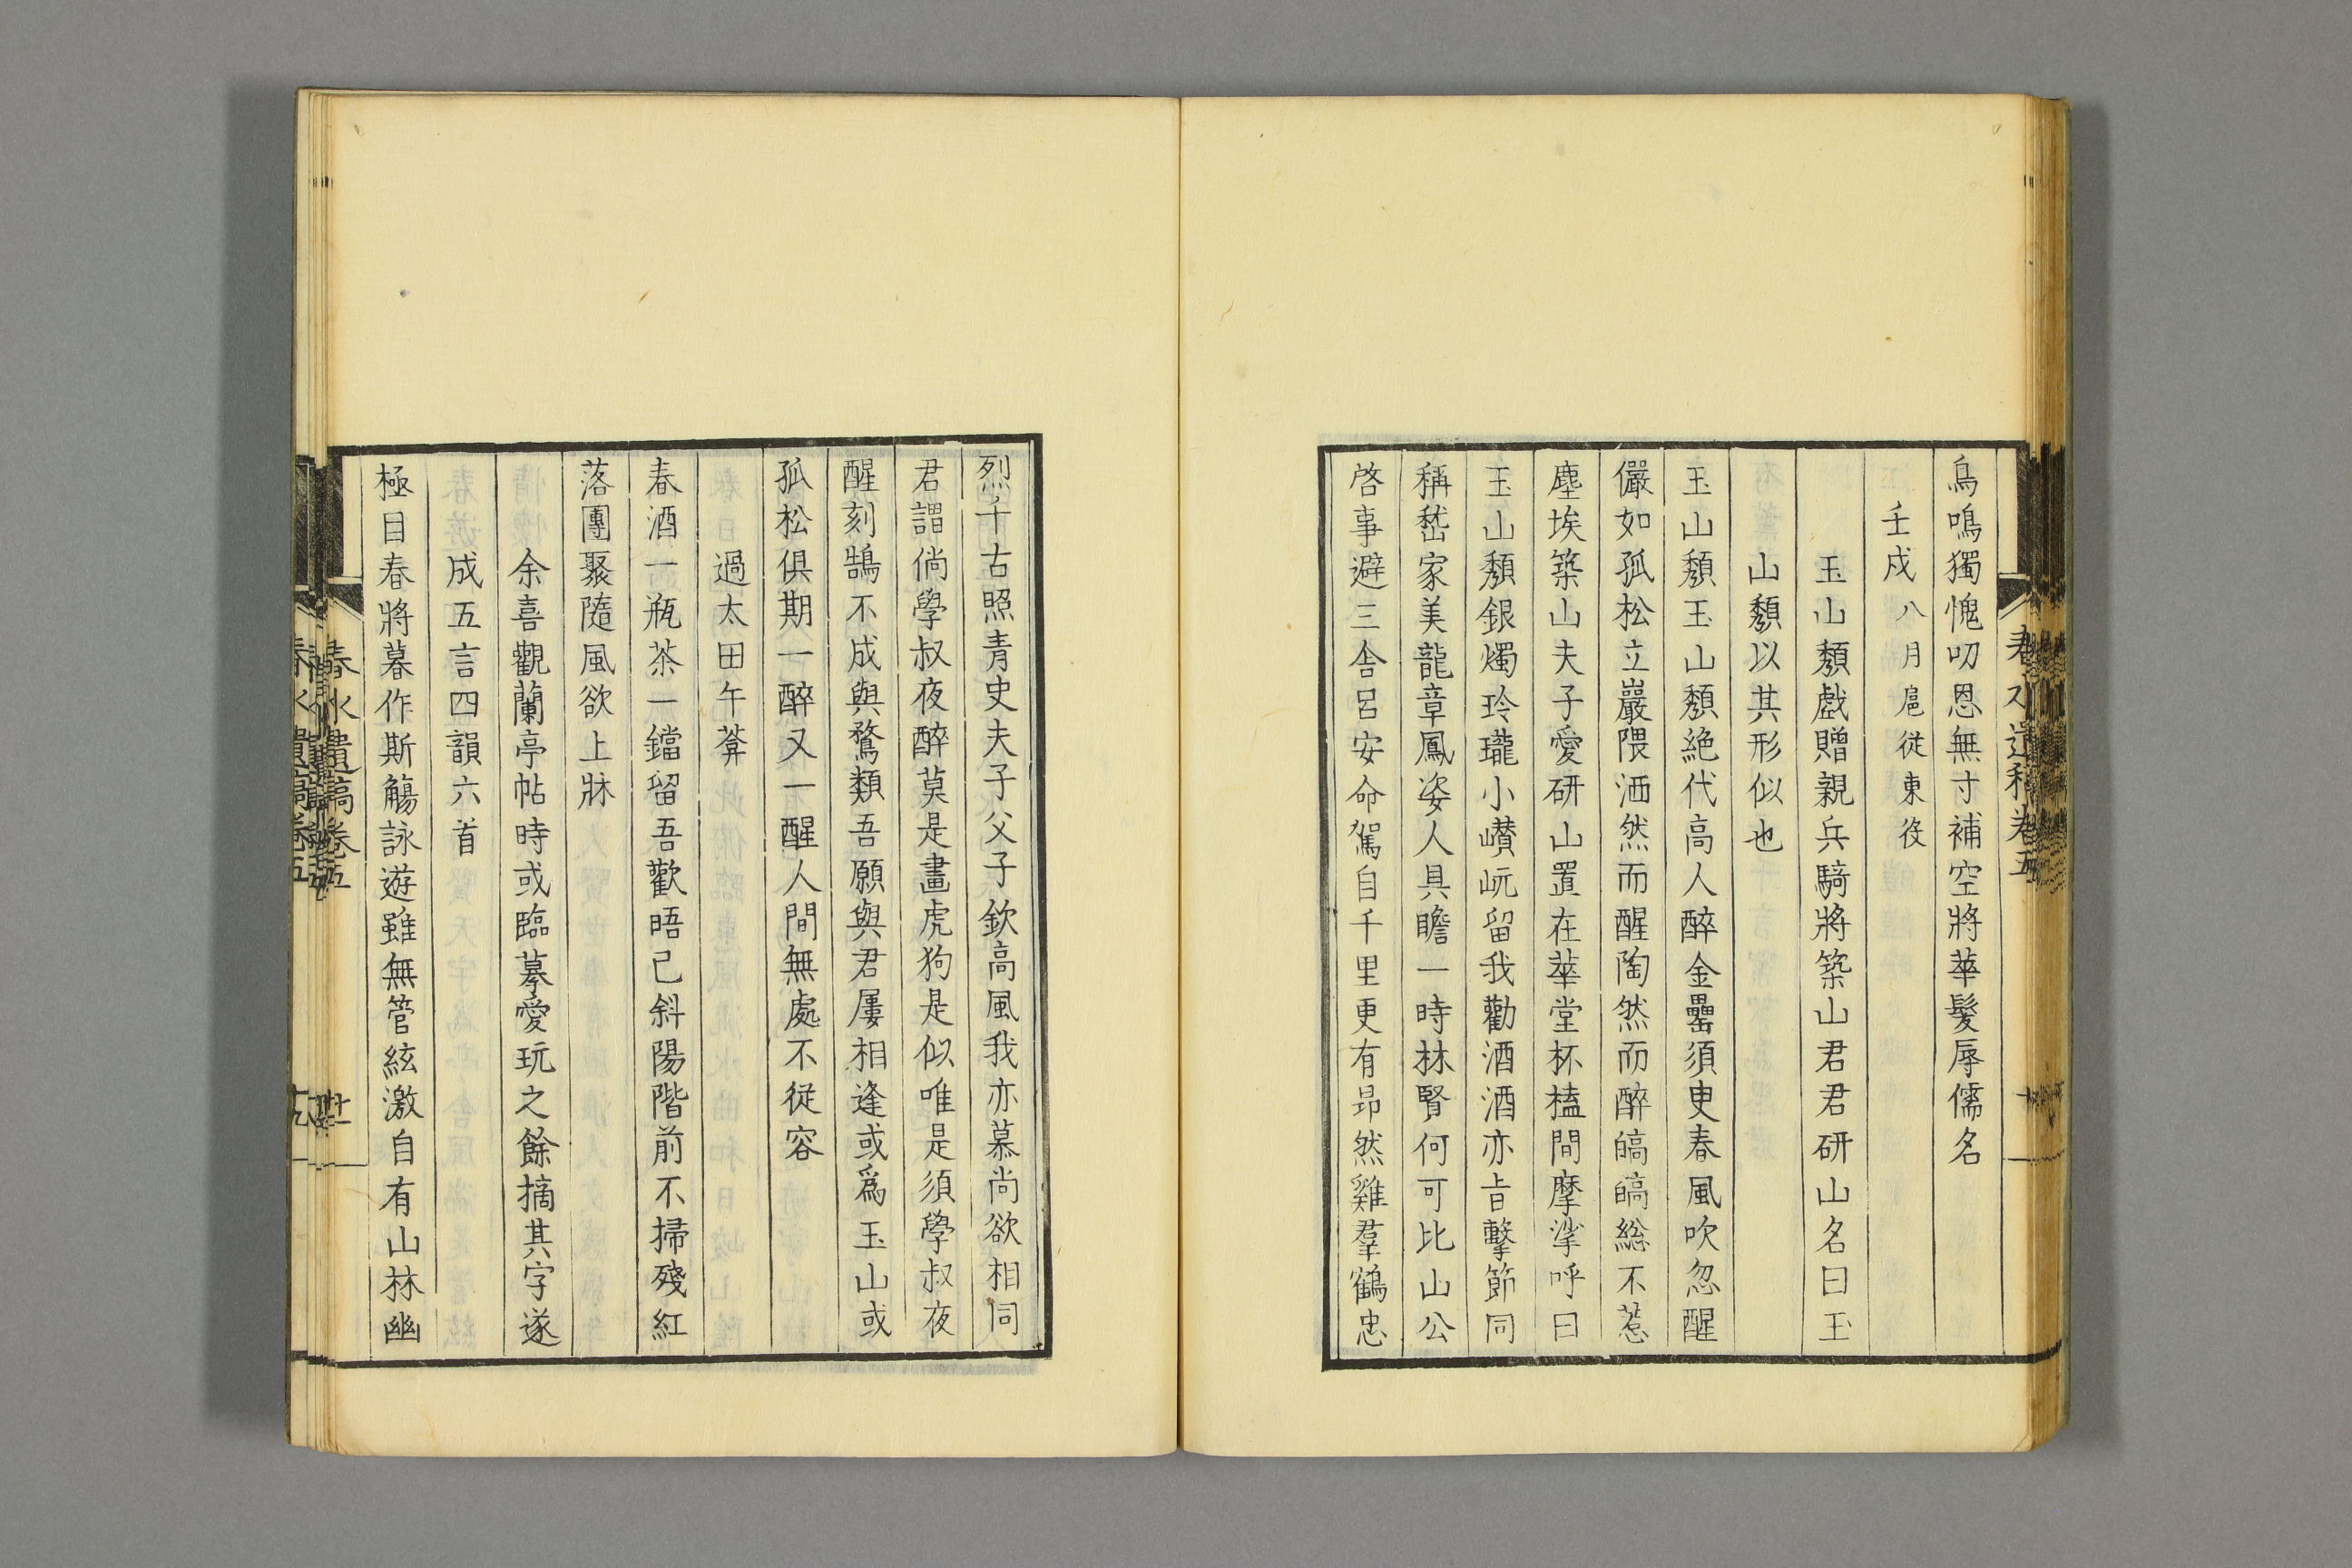 鳥鳴獨愧叨恩無寸補空將華髮辱儒名
壬戌八月扈從東役
玉山頽戲贈親兵騎將築山君君研山名曰玉
山頽以其形似也
玉山頽玉山頽絶代高人醉金罍須臾春風吹忽醒
儼如孤松立巖隈洒然而醒陶然而醉皜皜總不惹
塵埃築山夫子愛研山置在華堂杯榼間摩挲呼曰
玉山頽銀燭玲瓏小巑岏留我勸酒酒亦旨擊節同
稱嵇家美龍章鳳姿人具瞻一時林賢何可比山公
啓事避三舍呂安命駕自千里更有昻然雞羣鶴忠
烈千古照青史夫子父子欽高風我亦慕尚欲相同
君謂倘學叔夜醉莫是畫虎狗是似唯是須學叔夜
醒刻鵠不成與鶩類吾願與君屢相逢或爲玉山或
孤松俱期一醉又一醒人間無處不從容
過太田午莽
春酒一瓶茶一鐺留吾歡晤已斜陽階前不掃殘紅
落團聚隨風欲上牀
余喜觀蘭亭帖時或臨摹愛玩之餘摘其字遂
成五言四韻六首
極目春將暮作斯觴詠遊雖無管絃激自有山林幽
春水遺稿卷五